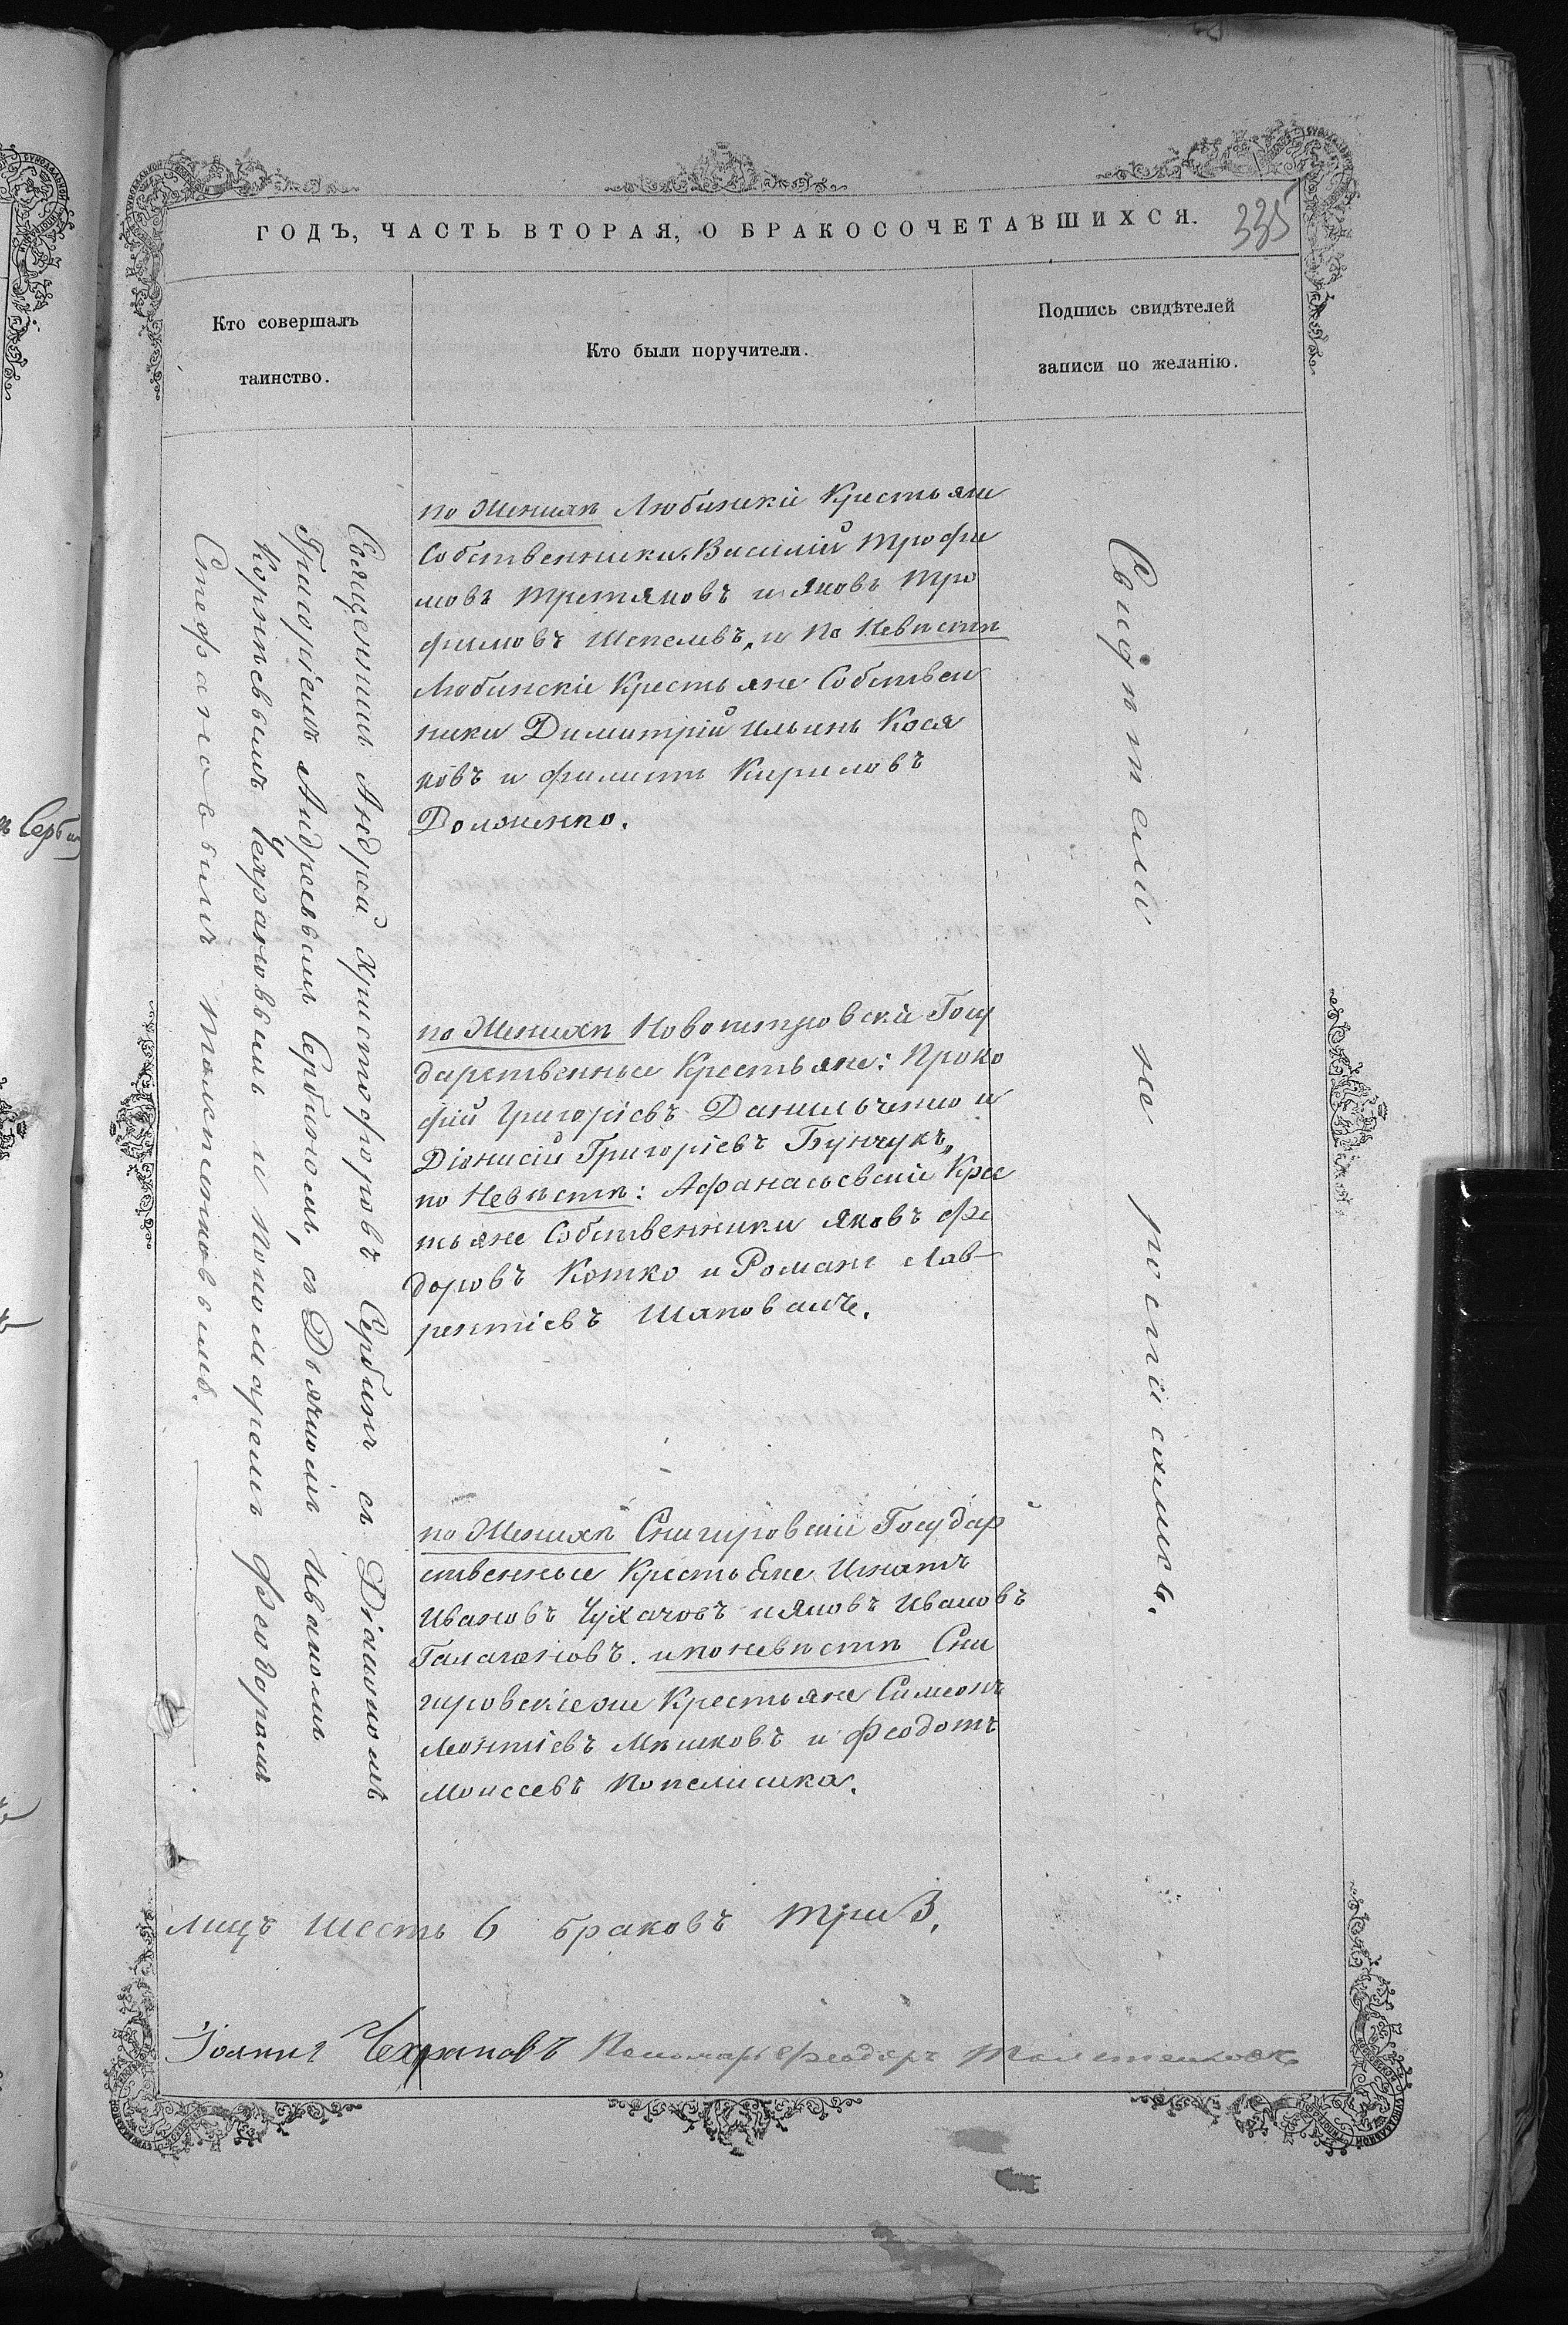 ГОДЪ, ЧАСТЬ ВТОРАЯ, О БРАКОСОЧЕТАВШИХСЯ.
335
Кто совершалъ
таинство.
Кто были поручители.
Подпись свидѣтелей
записи по желанію.
Священникъ Андрей Христофоровъ Сербинъ съ Діакономъ
Григоріемъ Андреевымъ Сербиномъ, съ Дьячкомъ Иваномъ
Корнѣевымъ Чехрановымъ и пономаремъ Феодоромъ
Стефановымъ
по Женихѣ Любинскіе Крестьяне
Собственники: Василій Трофи
мовъ Третяковъ и Яковъ Тро
фимовъ Шепелевъ, и по Невѣстѣ
Любинскіе Крестьяне Собствен
ники Димитрій Ильинъ Кося
ковъ и Филипъ Кириловъ
Долженко.
по Женихѣ Новопетровскіе Госу
дарственные Крестьяне: Проко
фій Григоріевъ Данильченко и
Діонисій Григоріевъ Бунчукъ,
по Невѣстѣ: Афанасьевскіе Крес
тьяне Собственники Яковъ Фе
доровъ Котко и Романъ Лав-
рентіевъ Шаповалъ.
по Женихѣ Снигировскіе Государ
ственные Крестьяне Игнатъ
Ивановъ Чухачовъ и Яковъ Ивановъ
Галагановъ. и по невѣстѣ Сни
гировскіе же Крестьяне Симеонъ
Леонтіевъ Мѣшковъ и Феодотъ
Моисеевъ Копелишка.
Свидѣтели не росписались.
Лицъ шесть 6 браковъ три 3.
Іоаннъ Чехрановъ Пономарь Феодоръ